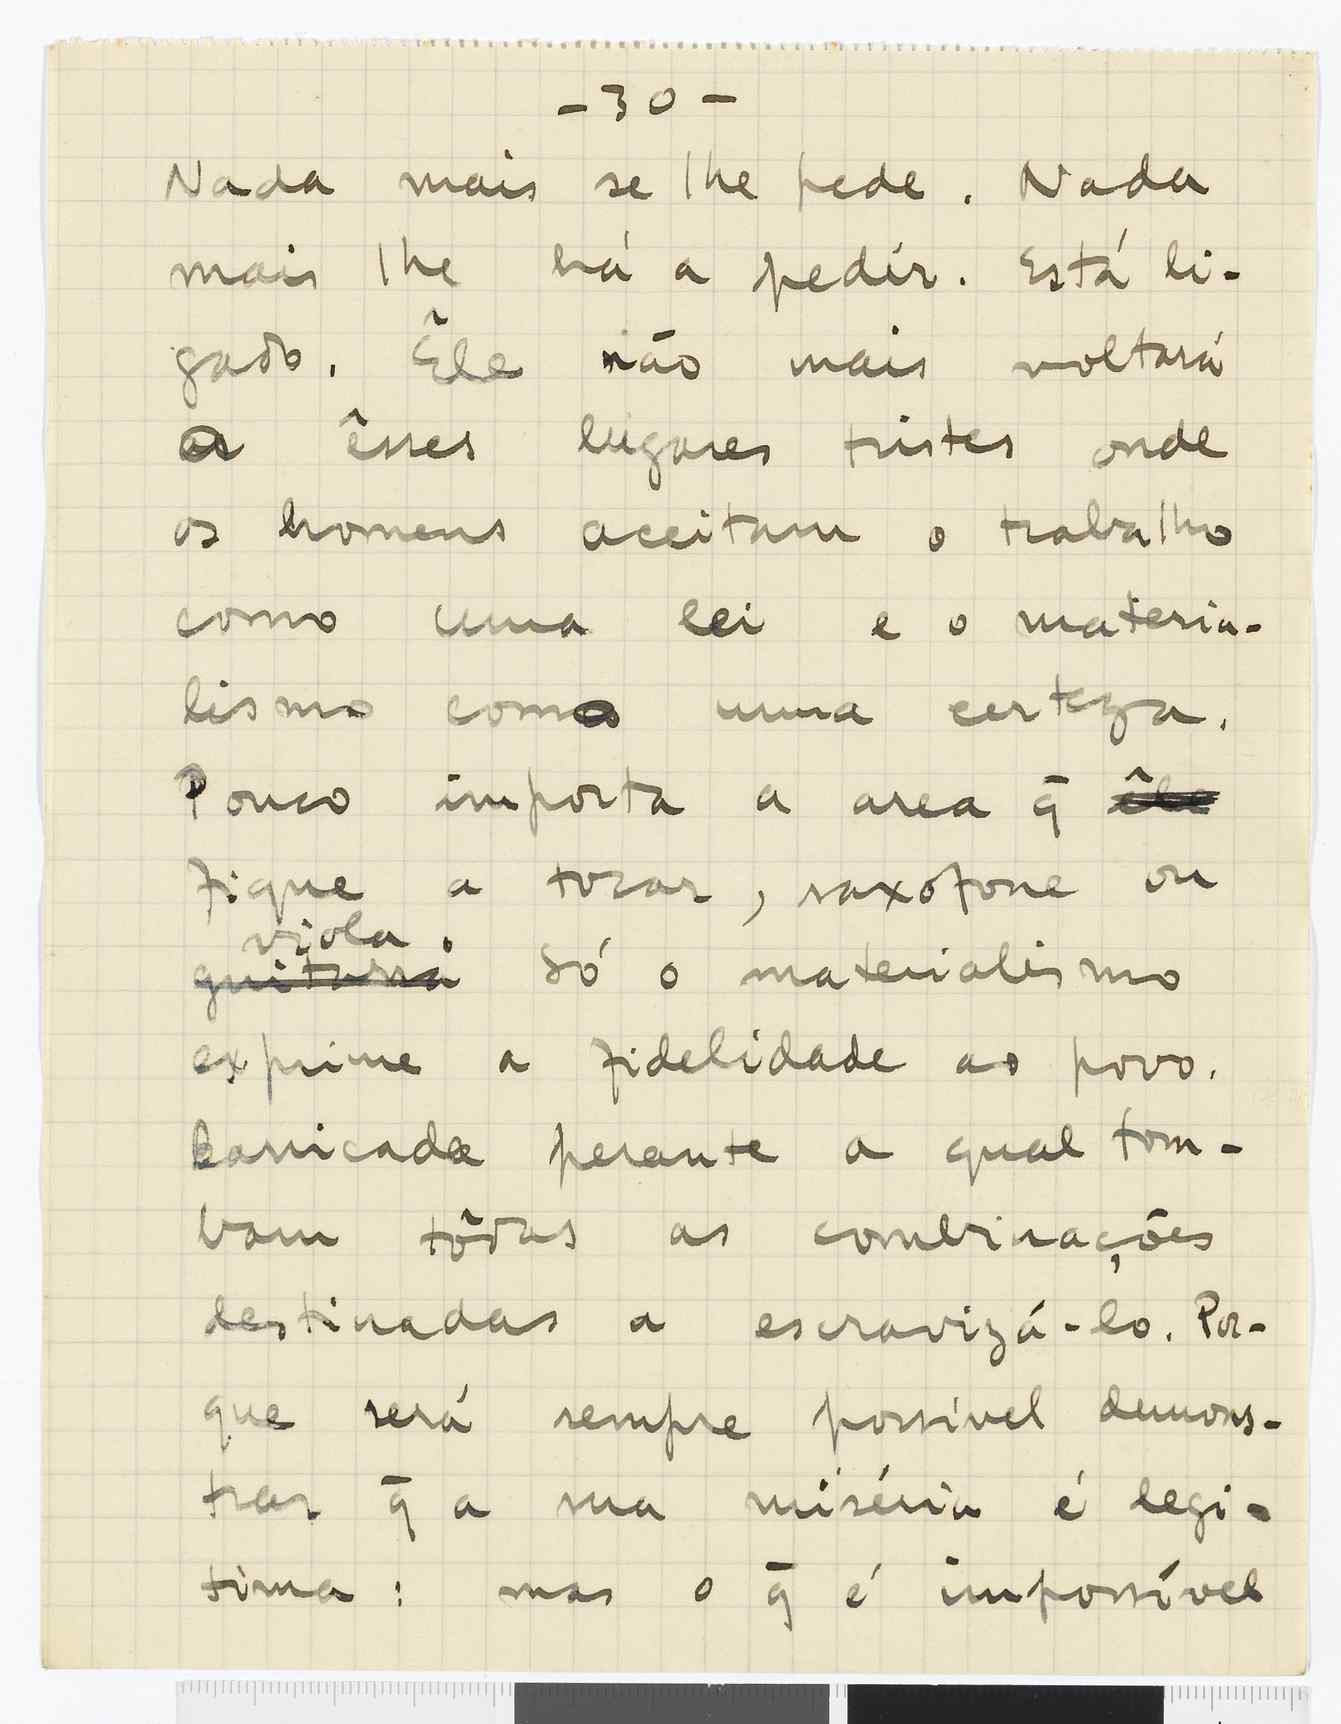 - 30 -
Nada mais se lhe pede. Nada
mais lhe há a pedir. Está li-
gado. Êle não mais voltará
a êsses lugares tristes onde
os homens aceitam o trabalho
como uma lei e o materia-
lismo como uma certeza.
Pouco importa a area q̄ êle
fique a tocar, saxofone ou
viola.
guitarra Só o materialismo
exprime a fidelidade ao povo.
barricada perante a qual tom-
bam tôdas as combinações
destinadas a escravizá-lo. Por-
que será sempre possível demons-
trar q̄ a sua miséria é legi-
tima: mas o q̄ é impossível